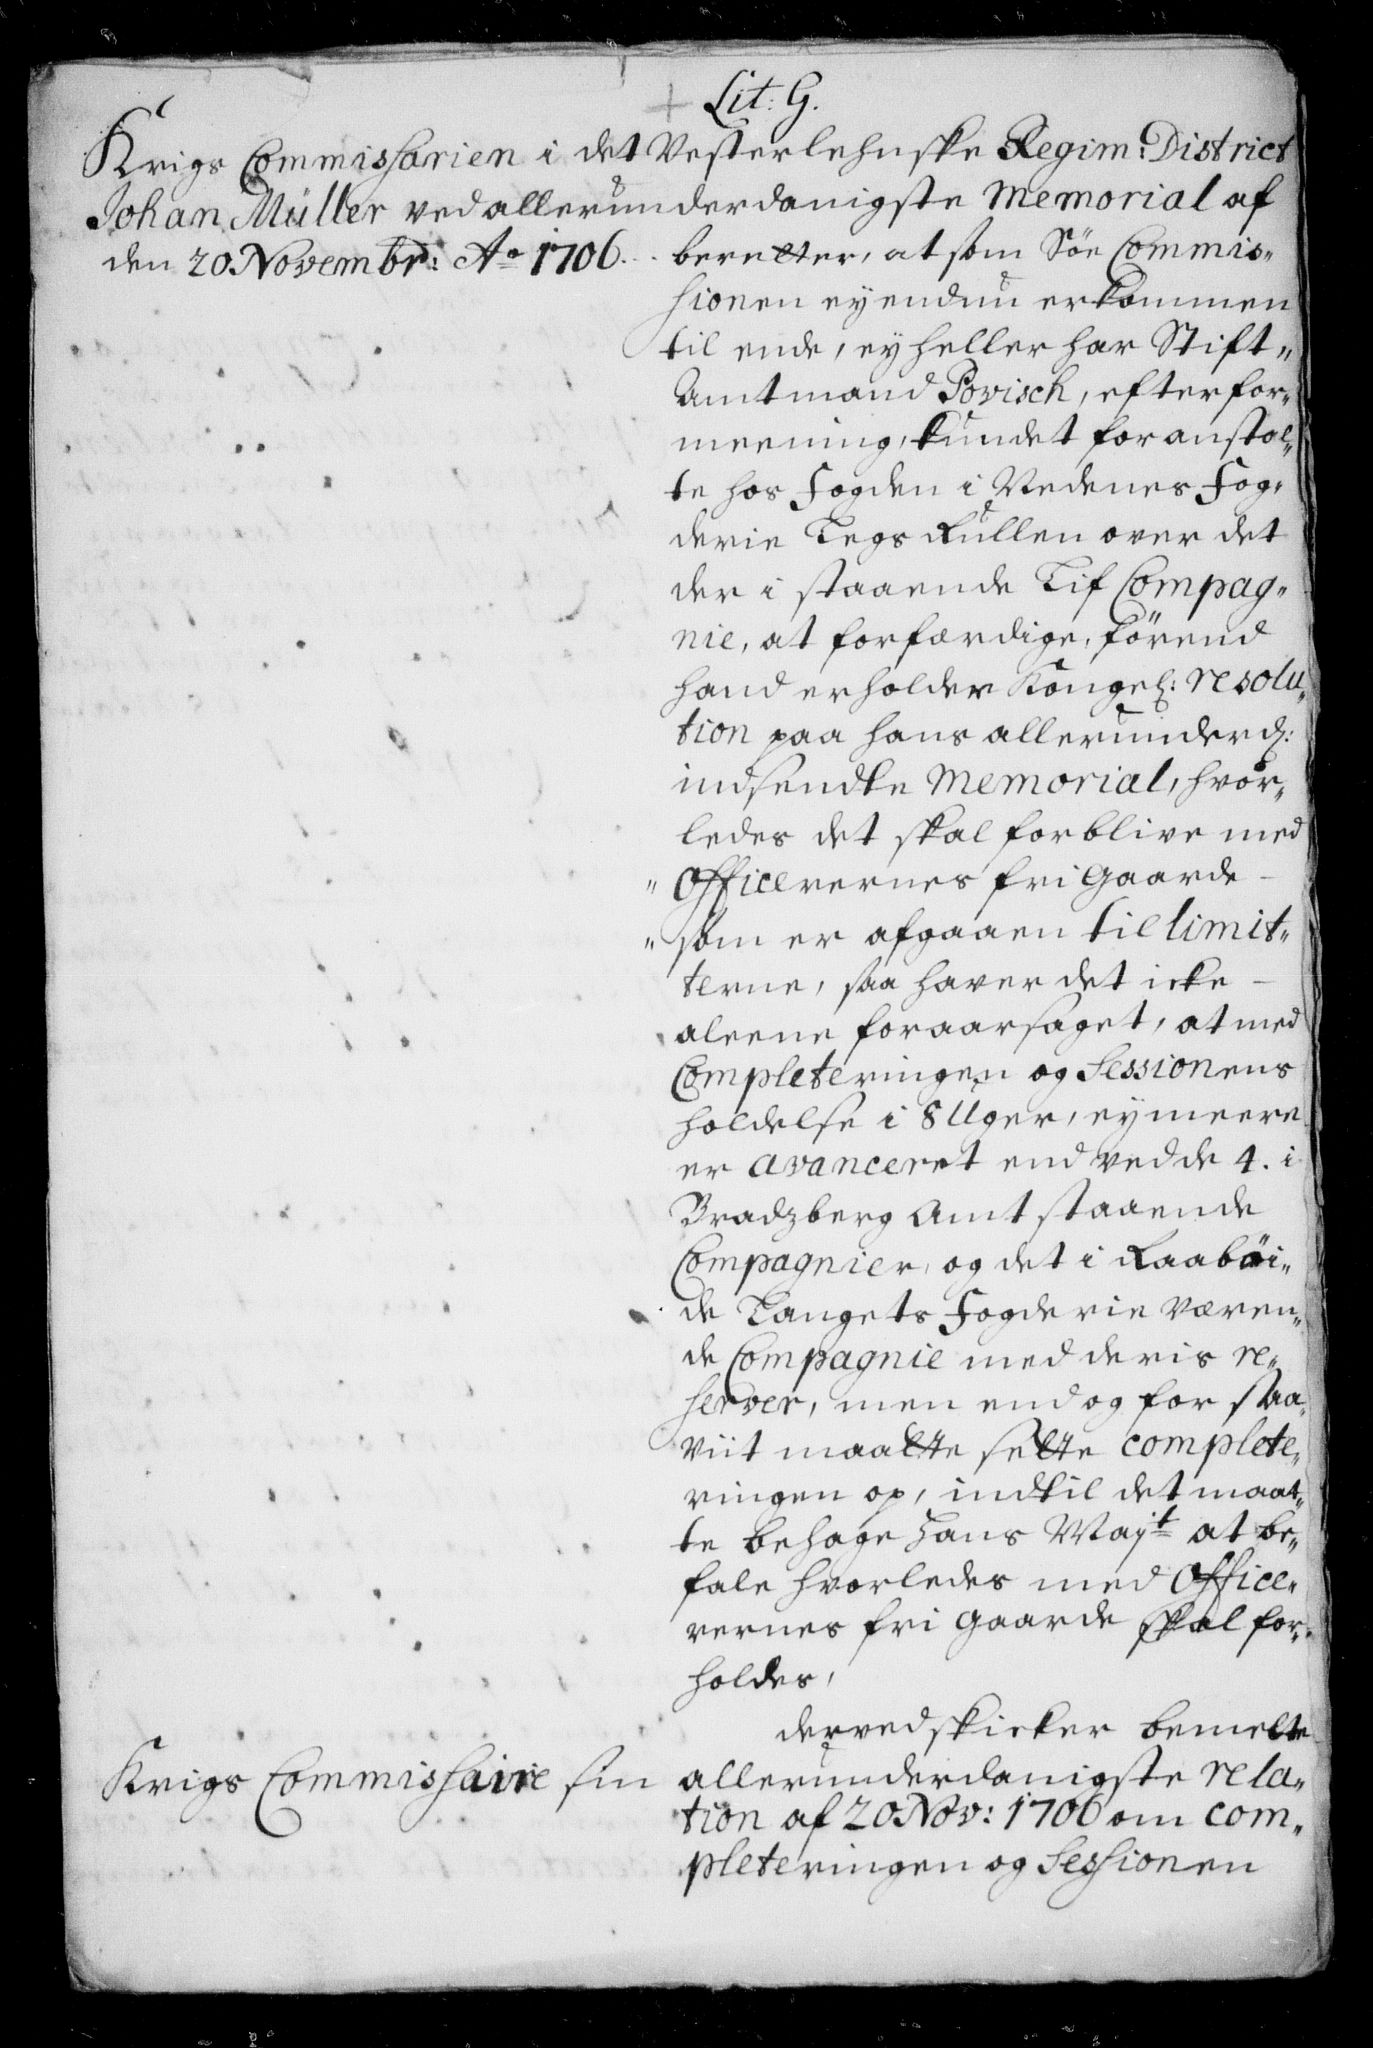 Lit: G.
Krigs Commissarien i det Vesterlehnske Regim: District
Johan Müller ved allerunderdanigste Memorial af
den 20 Novembr: Ao 1706. . beretter, at som Söe Commis„
sionen ey endnu er kommen
til ende, ey heller har Stift„
Amtmand Povisch, efter for„
meening, kundet foranstal„
te hos Fogden i Nedenes Fog„
derie Legs Rullen over det
der i staaende Lif Compag„
nie, at forfærdige, förend
hand erholder Kongel: resolu„
tion paa hans allerunderd:
indsendte Memorial, hvor„
ledes det skal forblive med
„ Officerernes fri Gaarde -
„ som er afgaaen til limit„
terne, saa haver det icke -
aleene foraarsaget, at med
Completeringen og Sessionens
holdelse i 8 Uger, ey meere
er avanceret end ved de 4. i
Bradzberg Amt staaende
Compagnier, og det i Raaböi„
de Laugets Fogderie væren„
de Compagnie med deris re„
server, men end og for saa„
viit maatte sette complete„
ringen op, indtil det maat„
te behage Hans Mayt at be„
fale hvorledes med Office„
rernes fri Gaarde skal for„
holdes,
derved skicker bemelte
Krigs Commissaire sin allerunderdanigste rela„
tion af 20 Nov: 1706 om com„
pleteringen og Sessionen